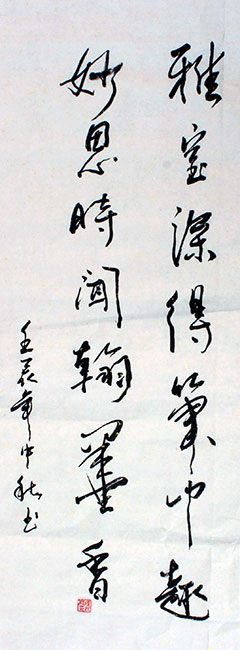 雅室深得筆中趣
妙思時聞翰墨香
壬辰年中秋书